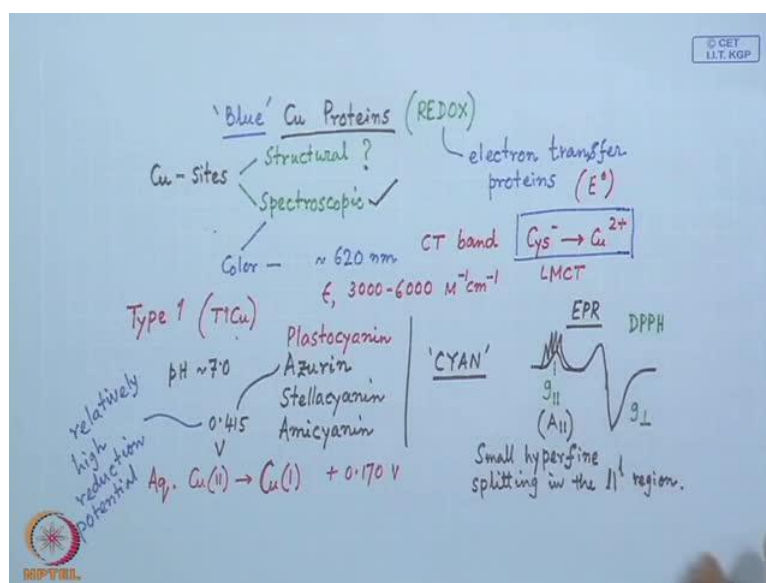 © CET
I.I.T. KGP
'Blue' Cu Proteins (REDOX)
Cu-Sites
Structural ?
Spectroscopic ✓
electron transfer
proteins (E°)
Color – ~ 620 nm
CT band
Cys⁻ → Cu²⁺
LMCT
ε, 3000-6000 M⁻¹cm⁻¹
Type 1 (T1Cu)
pH ~7.0
Plastocyanin
Azurin
Stellacyanin
Amicyanin
'CYAN'
0.415
V
relatively
high
reduction
potential
Aq. Cu(II) → Cu(I) + 0.170 V
EPR
DPPH
g||
(A||)
g⊥
Small hyperfine
splitting in the ||ˡ region.
NPTEL